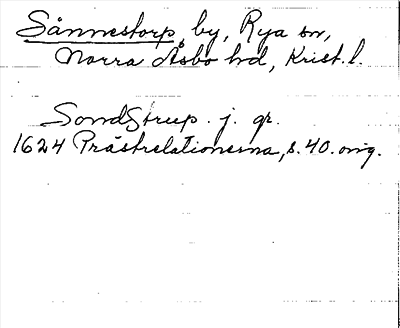 Sånnestorp, by, Rya sn,
Norra Åsbo hd, Krist. l.
SondStrup. j. gr.
1624 Prästrelationerna, s. 40. orig.